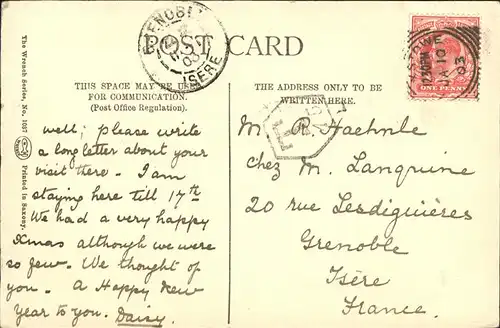 POST CARD
THIS SPACE MAY BE USED
FOR COMMUNICATION.
(Post Office Regulation).
THE ADDRESS ONLY TO BE
WRITTEN HERE.
The Wrench Series, No. 1057
Printed in Saxony.
GRENOBLE
ISERE
03
JA 10
03
ONE PENNY
well, please write
a long letter about your
visit there. I am
staying here till 17th
We had a very happy
Xmas although we were
so few. We thought of
you. A Happy New
Year to you. Daisy.
M. R. Haehnle
chez M. Lanquine
20 rue Lesdiguières
Grenoble
Isère
France.